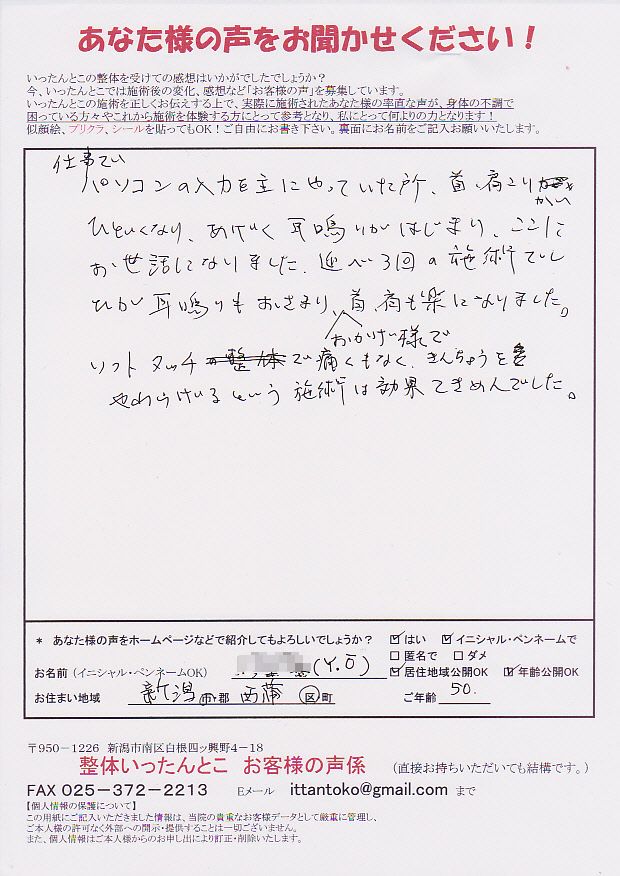 あなた様の声をお聞かせください!
いったんとこの整体を受けての感想はいかがでしたでしょうか?
今、いったんとこでは施術後の変化、感想など「お客様の声」を募集しています。
いったんとこの施術を正しくお伝えする上で、実際に施術されたあなた様の率直な声が、身体の不調で
困っている方々やこれから施術を体験する方にとって参考となり、私にとって何よりの力となります!
似顔絵、プリクラ、シールを貼ってもOK!ご自由にお書き下さい。裏面にお名前をご記入お願いいたします。
仕事でパソコンの入力を主にやっていた所、首、肩こりがかい
ひどくなり、あげく耳鳴りがはじまり、ここに
お世話になりました。延べ3回の施術でし
ひが耳鳴りもおさまり、首、肩も楽になりました。
おかげ様で
ソフトタッチで痛くもなく、きんちょうを
やわらげるという施術は効果てきめんでした。
* あなた様の声をホームページなどで紹介してもよろしいでしょうか? ☑はい ☑イニシャル・ペンネームで
□匿名で □ダメ
お名前(イニシャル・ペンネームOK) (Y.O) ☑居住地域公開OK ☑年齢公開OK
お住まい地域 新潟 市・郡 西蒲 区・町 ご年齢 50.
〒950-1226 新潟市南区白根四ッ興野4-18
整体いったんとこ お客様の声係 (直接お持ちいただいても結構です。)
FAX 025-372-2213 Eメール ittantoko@gmail.com まで
【個人情報の保護について】
この用紙にご記入いただきました情報は、当院の貴重なお客様データとして厳重に管理し、
ご本人様の許可なく外部への開示・提供することは一切ございません。
また、個人情報はご本人様からのお申し出により訂正・削除いたします。